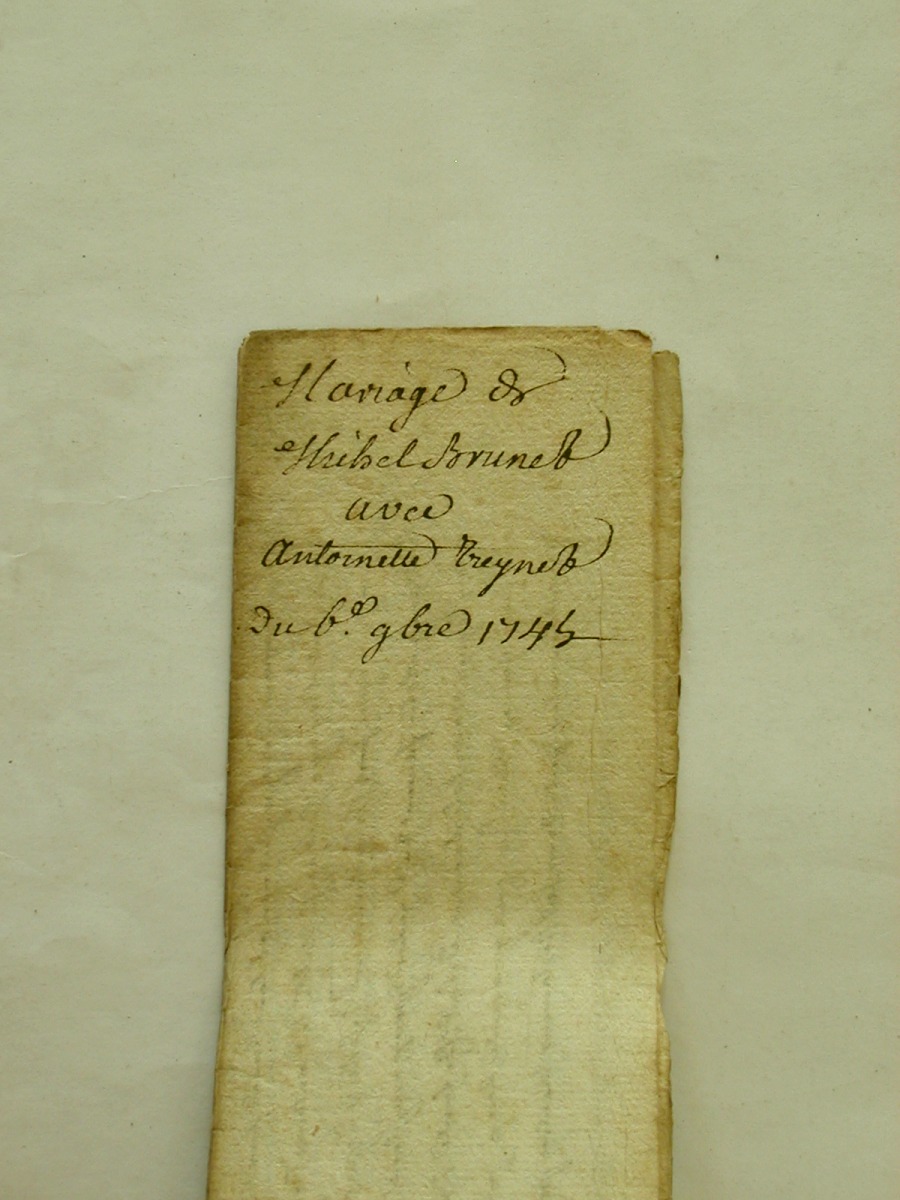 Mariage de
Michel Brunet
avec
Antoinette Treynet
Du 6.e 9bre 1745